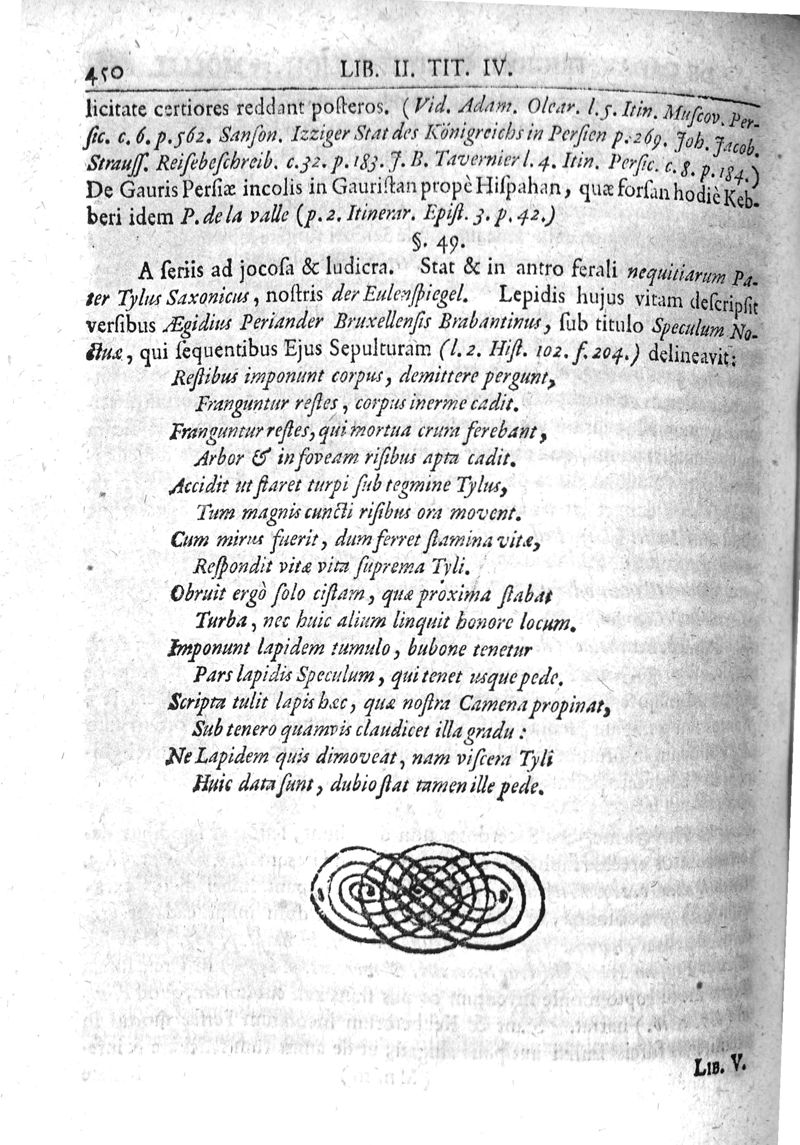 450 LIB. II. TIT. IV.
licitate certiores reddant poſteros. (Vid. Adam. Olear. l. 5. Itin. Muſcov. Per-
ſic. c. 6. p. 562. Sanſon. Izziger Stat des Königreichs in Perſien p. 269. Joh. Jacob.
Strauſſ. Reiſebeſchreib. c. 32. p. 183. J. B. Tavernier l. 4. Itin. Perſic. c. 8. p. 184.)
De Gauris Perſiæ incolis in Gauriſtan propè Hiſpahan, quæ forſan hodiè Keb-
beri idem P. de la valle (p. 2. Itinerar. Epiſt. 3. p. 42.)
§. 49.
A ſeriis ad jocoſa & ludicra. Stat & in antro ferali nequitiarum Pa-
ter Tylus Saxonicus, noſtris der Eulenſpiegel. Lepidis hujus vitam deſcripſit
verſibus Ægidius Periander Bruxellenſis Brabantinus, ſub titulo Speculum No-
ctuæ, qui ſequentibus Ejus Sepulturam (l. 2. Hiſt. 102. f. 204.) delineavit:
Reſtibus imponunt corpus, demittere pergunt,
Franguntur reſtes, corpus inerme cadit.
Franguntur reſtes, qui mortua crura ferebant,
Arbor & in foveam riſibus apta cadit.
Accidit ut ſtaret turpi ſub tegmine Tylus,
Tum magnis cuncti riſibus ora movent.
Cum mirus fuerit, dum ferret ſtamina vitæ,
Reſpondit vitæ vita ſuprema Tyli.
Obruit ergò ſolo ciſtam, quæ proxima ſtabat
Turba, nec huic alium linquit honore locum.
Imponunt lapidem tumulo, bubone tenetur
Pars lapidis Speculum, qui tenet usque pede.
Scripta tulit lapis hæc, quæ noſtra Camena propinat,
Sub tenero quamvis claudicet illa gradu:
Ne Lapidem quis dimoveat, nam viſcera Tyli
Huic data ſunt, dubio ſtat tamen ille pede.
LIB. V.